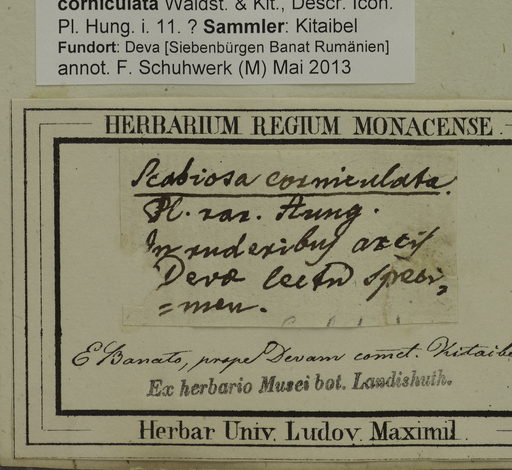 corniculata Waldst. & Kit., Descr. Icon.
Pl. Hung. i. 11. ? Sammler: Kitaibel
Fundort: Deva [Siebenbürgen Banat Rumänien]
annot. F. Schuhwerk (M) Mai 2013
HERBARIUM REGIUM MONACENSE.
Scabiosa corniculata.
Pl. rar. Hung.
In ruderibus arcis
Devæ lectũ speci=
=men.
E Banato, prope Devam comct. Kitaibe
Ex herbario Musei bot. Landishuth.
Herbar Univ. Ludov. Maximil.